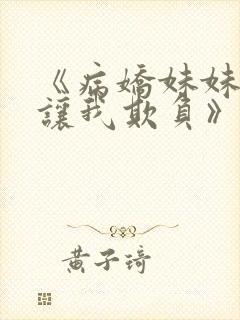 《病嬌妹妹
讓我欺負》
黄子琦